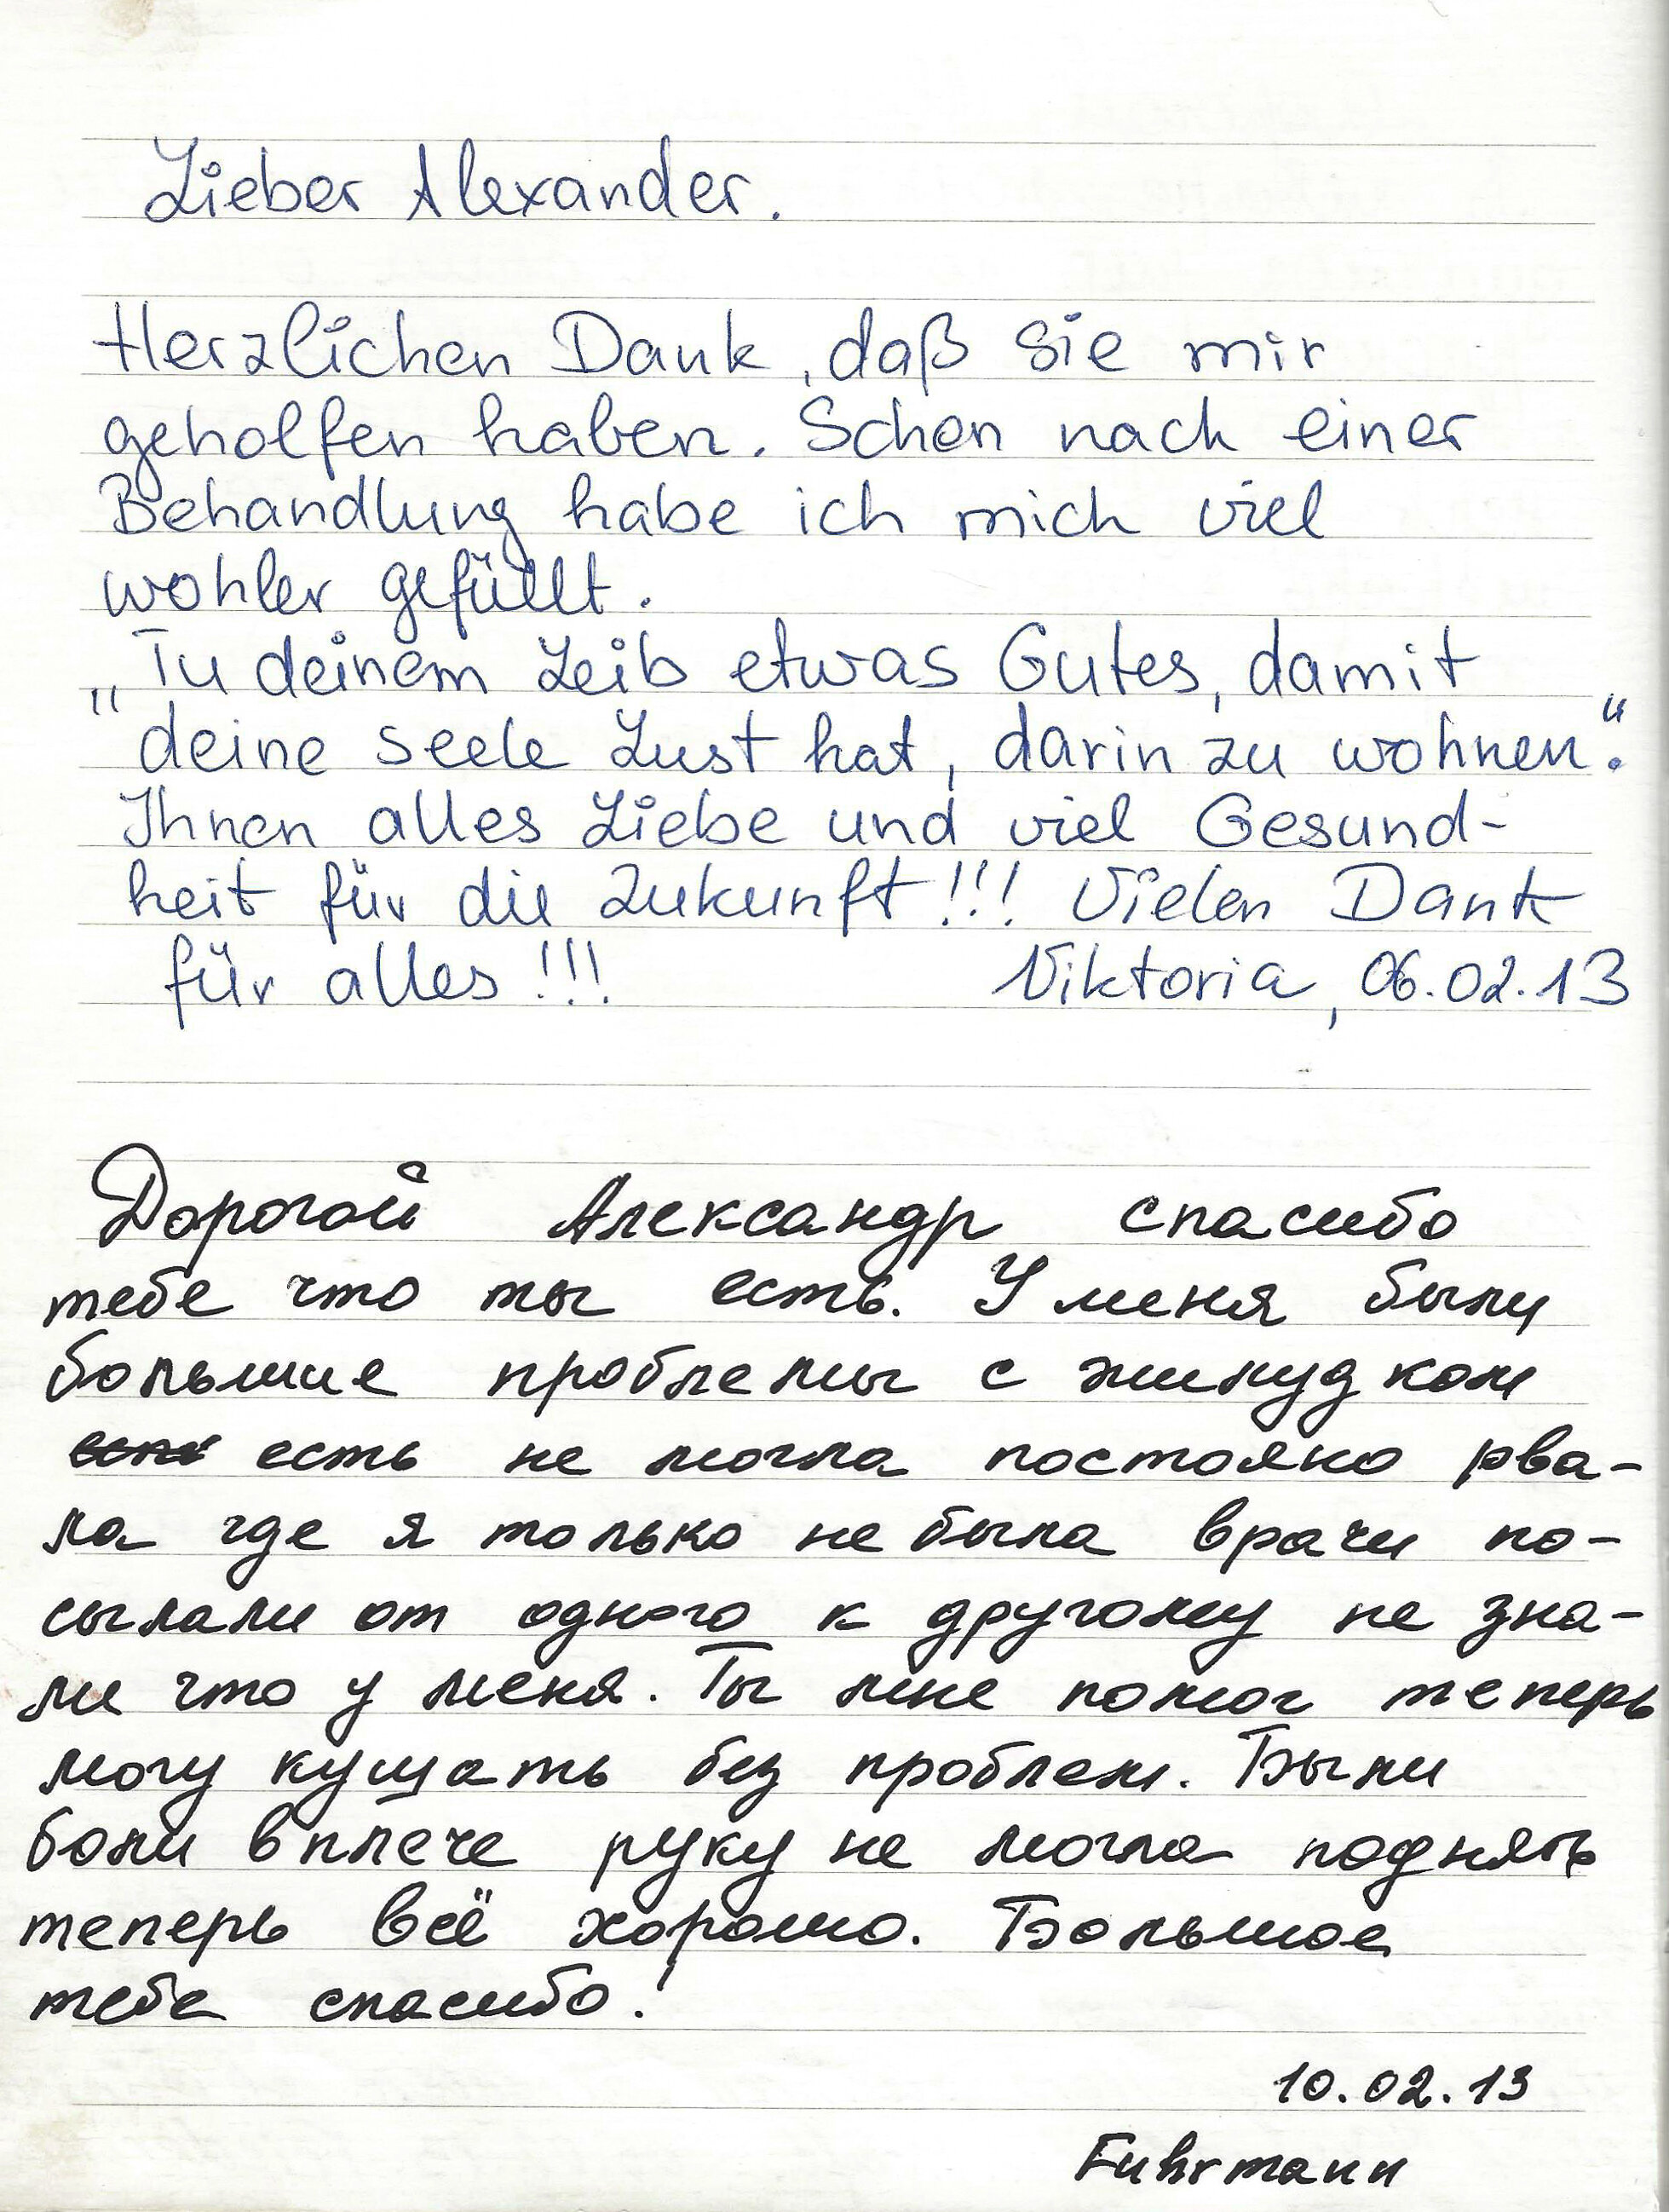 Lieber Alexander.
Herzlichen Dank, daß Sie mir
geholfen haben. Schon nach einer
Behandlung habe ich mich viel
wohler gefüllt.
„Tu deinem Leib etwas Gutes, damit
deine Seele Lust hat, darin zu wohnen“.
Ihnen alles Liebe und viel Gesund-
heit für die Zukunft!!! Vielen Dank
für alles!!! Viktoria, 06.02.13
Дорогой Александр спасибо
тебе что ты есть. У меня были
большие проблемы с жилудком
есть не могла постояно рва-
ла где я только не была врачи по-
сылали от одного к другому не зна-
ли что у меня. Ты мне помог теперь
могу кушать без проблем. Были
боли в плече руку не могла поднять
теперь всё хорошо. Большое
тебе спасибо!
10.02.13
Fuhrmann